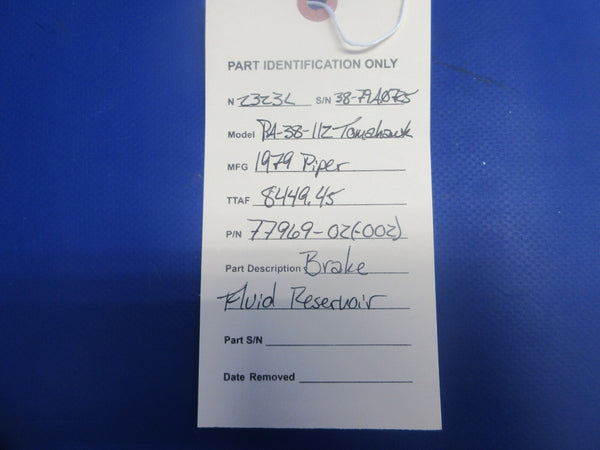 PART IDENTIFICATION ONLY
N 2323L S/N 38-79A0725
Model PA-38-112 Tomahawk
MFG 1979 Piper
TTAF 8449.45
P/N 77969-02(-002)
Part Description Brake
Fluid Reservoir
Part S/N
Date Removed